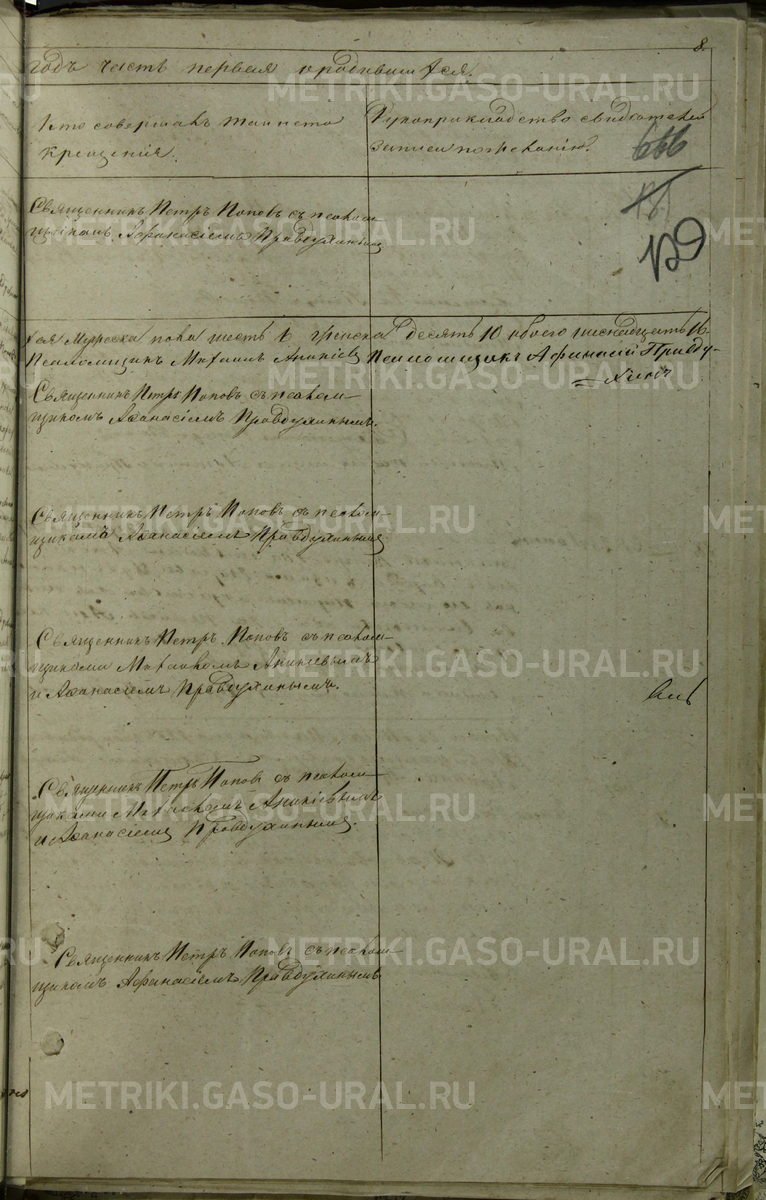 8.
годъ часть первая о родившихся.
Кто совершалъ таинство
крещенія.
Рукоприкладство свидѣтелей
записи по желанію.
129
Священникъ Петръ Поповъ съ псалом-
щикомъ Афанасіемъ Правдухинымъ
мужеска пола шесть 6 женска десять 10 обоего шестнадцать 16
Псаломщикъ Михаилъ Ананіевъ Псаломщикъ Афанасій Правду-
хинъ
Священникъ Петръ Поповъ съ псалом-
щикомъ Афанасіемъ Правдухинымъ.
Священникъ Петръ Поповъ съ псалом-
щикомъ Афанасіемъ Правдухинымъ
Священникъ Петръ Поповъ съ псалом-
щиками Михаиломъ Ананіевымъ
и Афанасіемъ Правдухинымъ.
Священникъ Петръ Поповъ съ псалом-
щиками Михаиломъ Ананіевымъ
и Афанасіемъ Правдухинымъ.
Священникъ Петръ Поповъ съ псалом-
щикомъ Афанасіемъ Правдухинымъ
METRIKI.GASO-URAL.RU